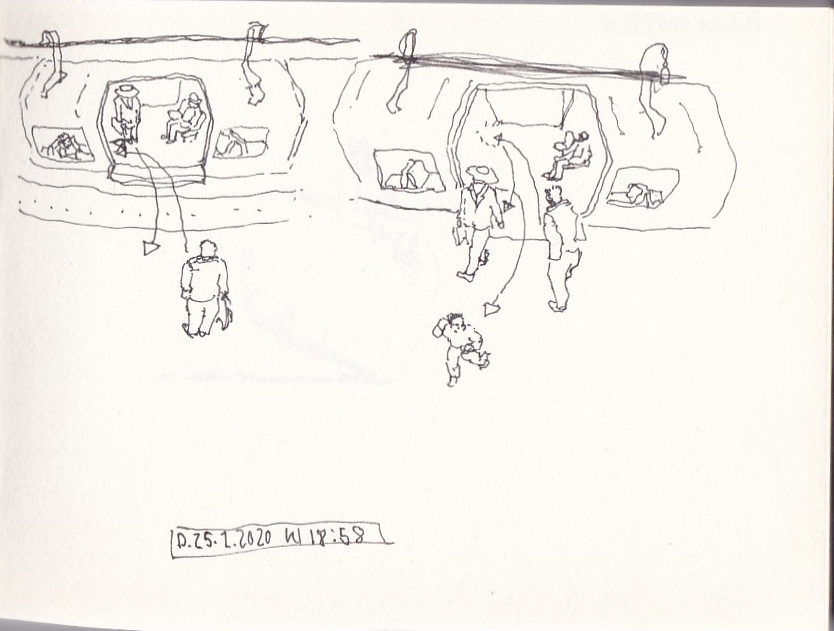 D.25.1.2020 W 18:58